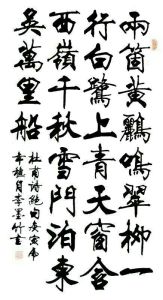 兩箇黃鸝鳴翠柳一
行白鷺上青天窗含
西嶺千秋雪門泊東
吳萬里船
杜甫詩絕句庚寅虎
年桂月李墨竹書